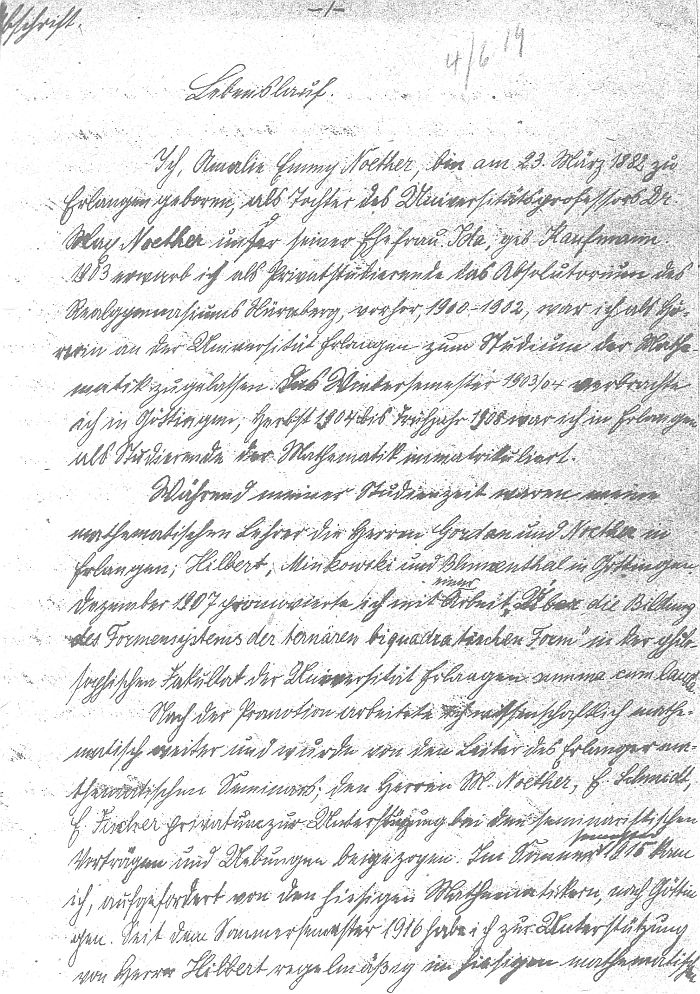 Abschrift.
-1-
4/6 19
Lebenslauf.
Ich, Amalie Emmy Noether, bin am 23. März 1882 zu
Erlangen geboren, als Tochter des Universitätsprofessors Dr.
Max Noether und seiner Ehefrau Ida, geb. Kaufmann.
1903 erwarb ich als Privatstudierende das Absolutorium des
Realgymnasiums Nürnberg, vorher, 1900-1902, war ich als Hö-
rerin an der Universität Erlangen zum Studium der Mathe-
matik zugelassen. Das Wintersemester 1903/04 verbrachte
ich in Göttingen, Herbst 1904 bis Frühjahr 1908 war ich in Erlangen
als Studierende der Mathematik immatrikuliert.
Während meiner Studienzeit waren meine
mathematischen Lehrer die Herren Gordan und Noether in
Erlangen; Hilbert, Minkowski und Blumenthal in Göttingen.
Dezember 1907 promovierte ich mit einer Arbeit „Über die Bildung
des Formensystems der ternären biquadratischen Form" in der philo-
sophischen Fakultät der Universität Erlangen summa cum laude.
Nach der Promotion arbeitete ich wissenschaftlich mathe-
matisch weiter und wurde von den Leiter des Erlanger ma-
thematischen Seminars; den Herren M. Noether, E. Schmidt,
E. Fischer privatum zur Unterstützung bei den seminaristischen
Vorträgen und Uebungen beigezogen. Im Sommersemester 1915 kam
ich, aufgefordert von den hiesigen Mathematikern, nach Göttin-
gen. Seit dem Sommersemester 1916 habe ich zur Unterstützung
von Herrn Hilbert regelmäßig im hiesigen mathematisch-